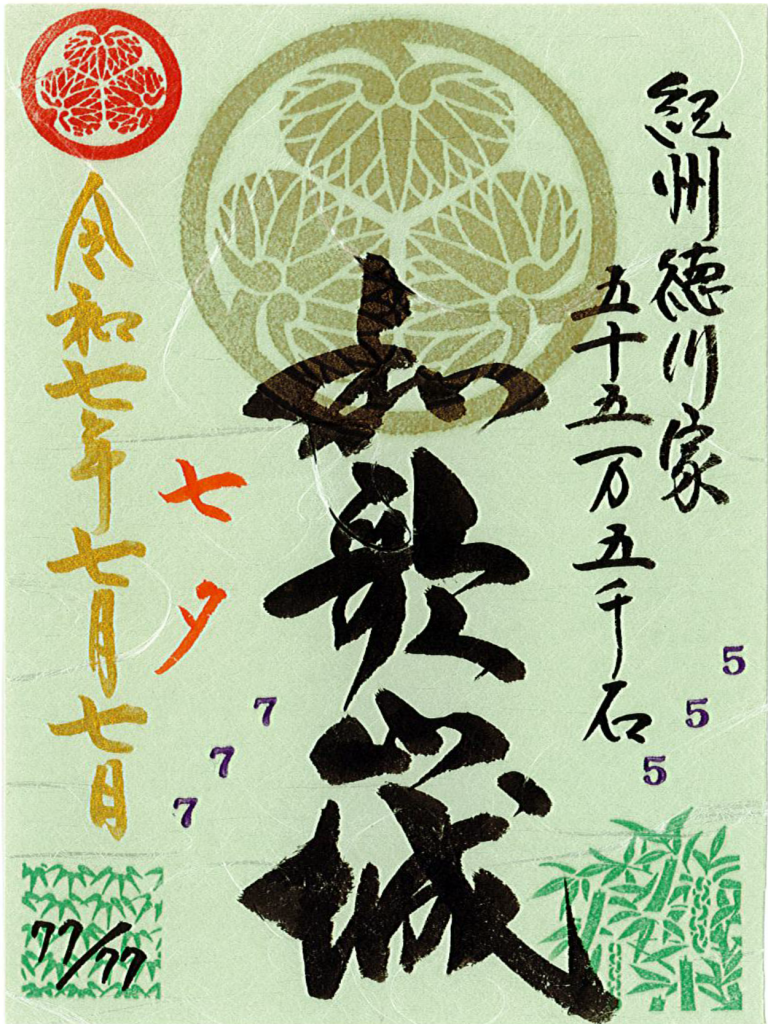 紀州徳川家
五十五万五千石
5
5
5
和歌山城
七夕
7
7
7
令和七年七月七日
77/77